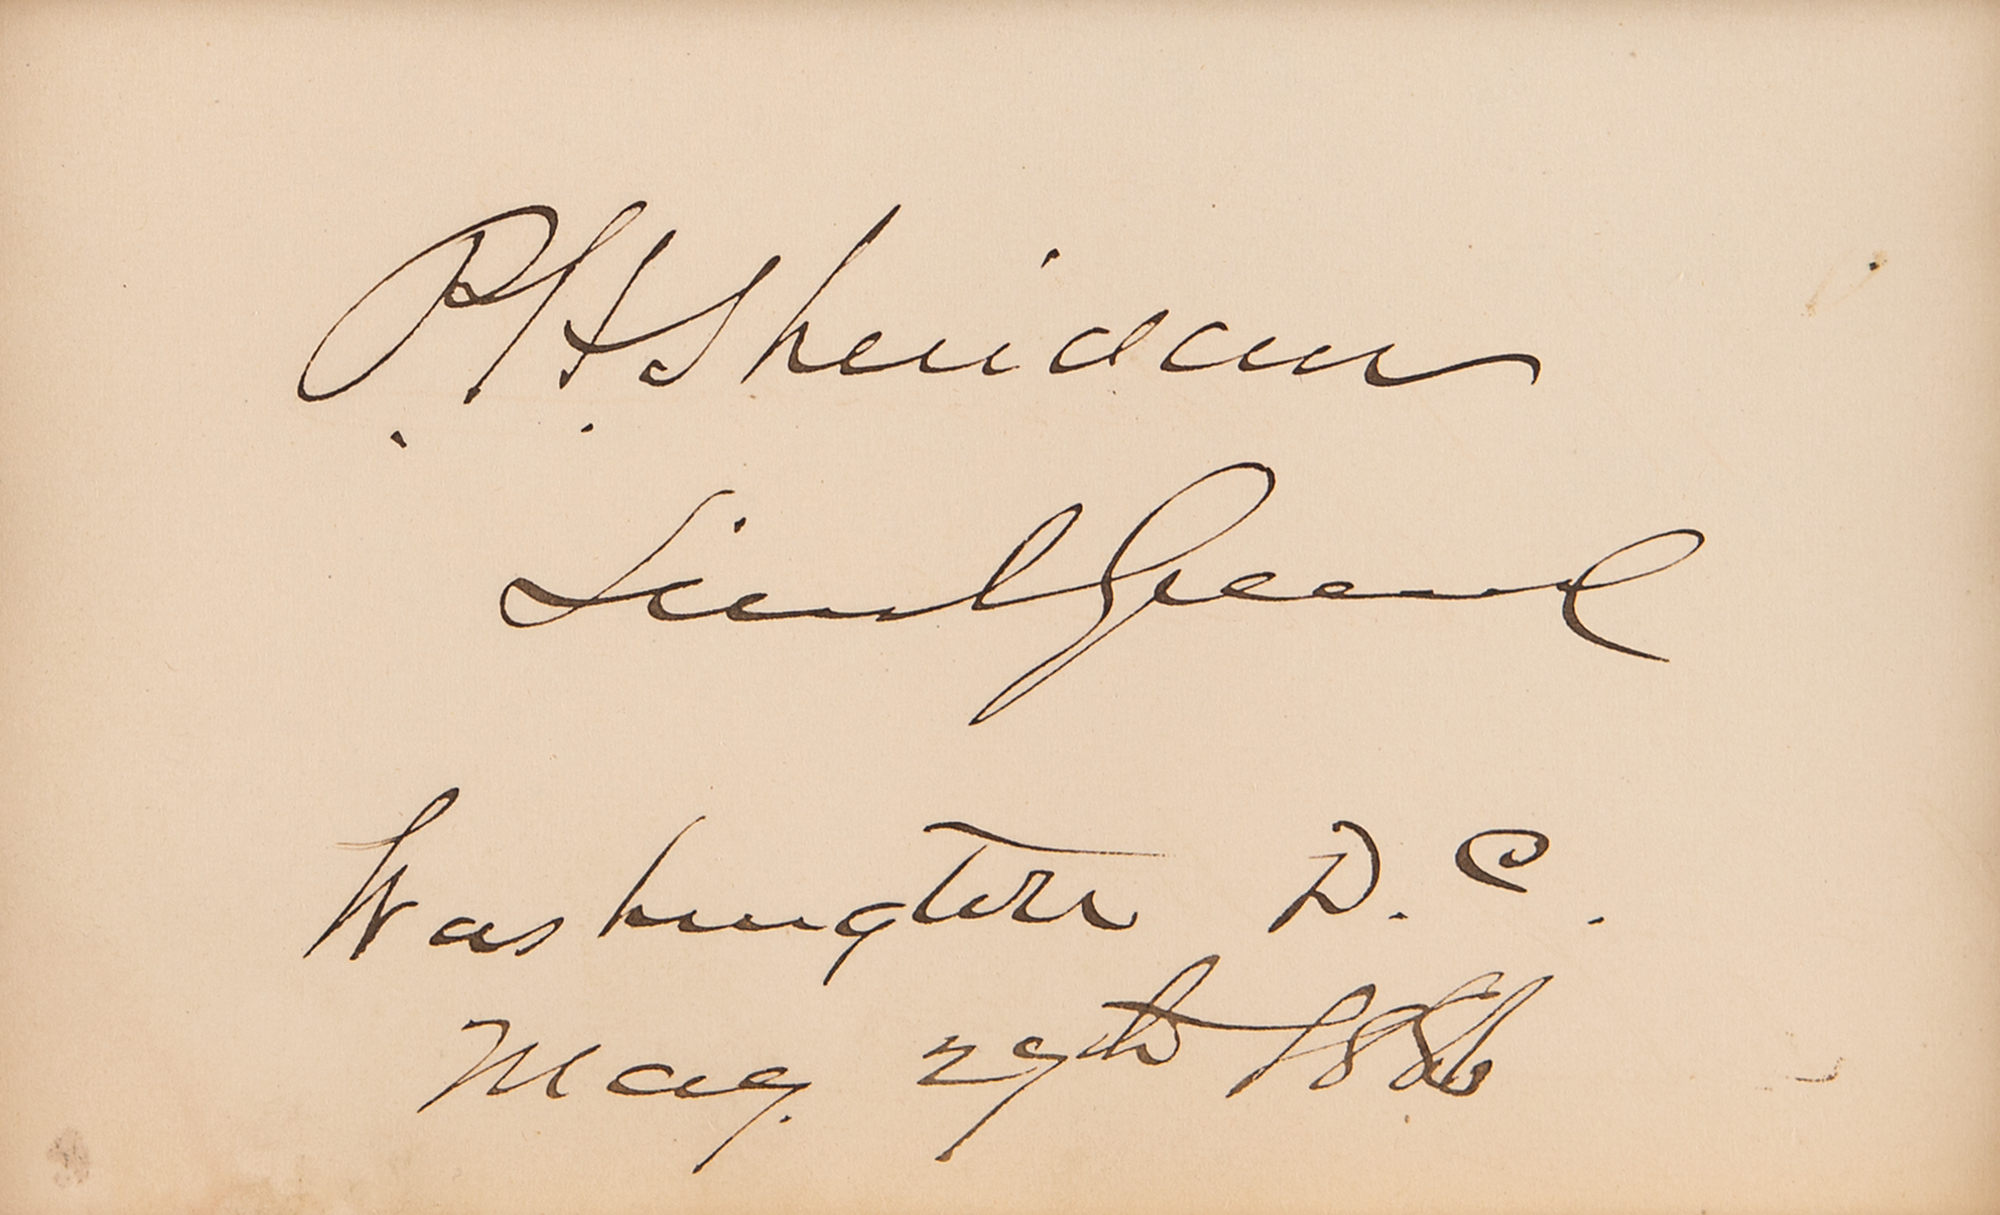 P. H. Sheridan
Lieut General
Washington D. C.
May 29th 1886